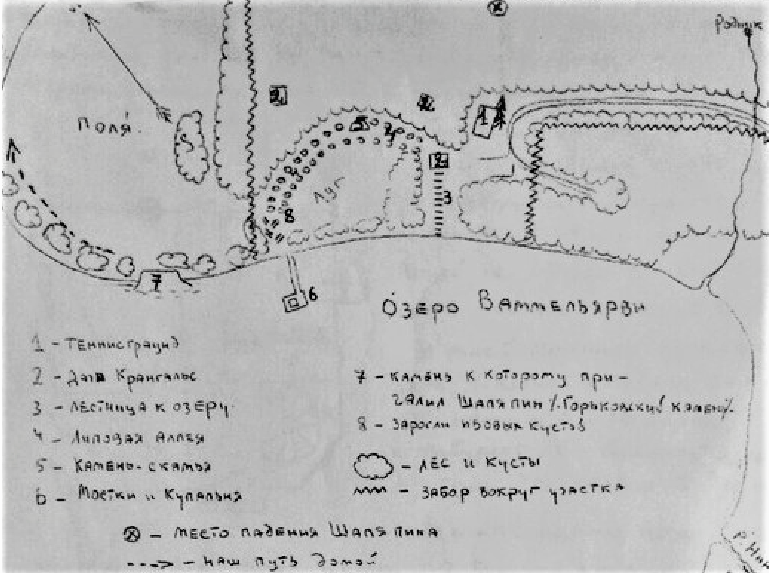 Родник
Поля.
5
2
2
1
5
4
2
Луг
8
3
7
6
Озеро Ваммельярви
1 - Теннисграунд
2 - Дача Крангальс
3 - Лестница к озеру
4 - Липовая аллея
5 - Камень-скамья
6 - Мостки и купальня
7 - Камень к которому при-
чалил Шаляпин /"Горьковский камень"/
8 - Заросли ивовых кустов
- Лес и кусты
- Забор вокруг участка
- Место падения Шаляпина
- Наш путь домой